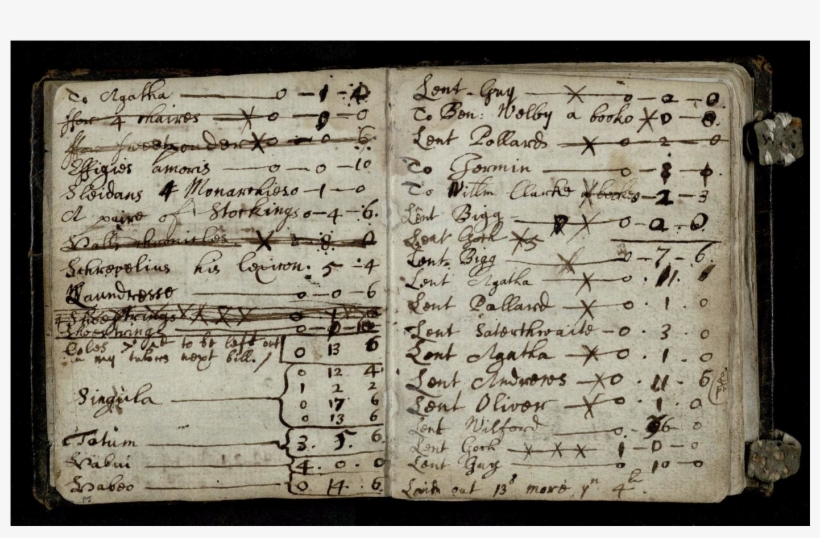 To Agatha — 0 - 1 - 4
ffor 4 chaires — X 0 - 0
X 0 - 0 - 6
Effigies amoris — 0 - 0 - 10
Sleidans 4 Monarchies 0 - 1 - 0
A paire of Stockings 0 - 4 - 6.
Halls chronicles X 0 - 8 - 0
Schrevelius his lexicon. 5 - 4
Laundresse 0 - 0 - 6
Shoestrings X X X X 0
Shoestrings
to be left out 0 13 6
in my tutors next bill.
0 12 4
1 2 2
Singula — 0 17 6
0 13 6
Totum — 3. 5. 6
Habui — 4. 0. 0
Habeo — 0 14. 6.
Lent Guy — X — 0
To Ben: Welby a booke X 0 - 8.
Lent Pollard — X — 0 - 2 - 0
To Jermin — 0
To Willm Clarke books - 2 - 3
Lent Bigg — X 0
Lent Cock
Lent Bigg — X — 0 - 7 - 6.
Lent Agatha — X — 0 . 11.
Lent Pollard — X 0 . 1 . 0
Lent Saterthwaite - 0 . 3 . 0
Lent Agatha — X 0 . 1 . 0
Lent Andrews — X 0 . 11 . 6
Lent Oliver — X 0 . 1 . 0
Lent Wilford 0
Lent Cock — X X X 1 - 0 - 0
Lent Guy — 0 10 - 0
Laid out 13s more, yn 4